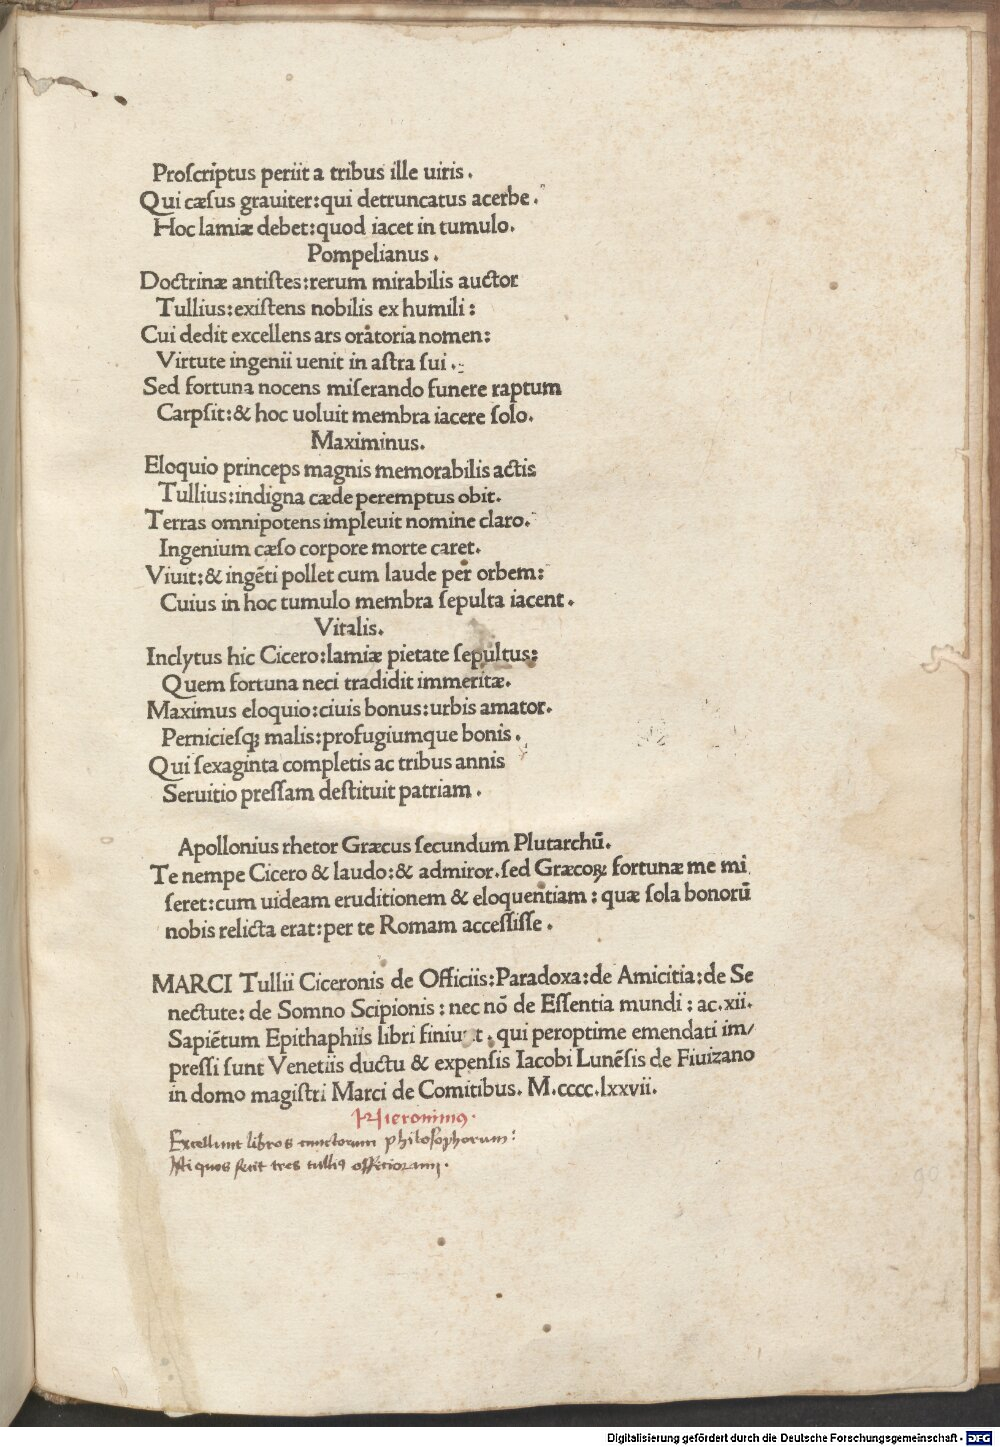 Proſcriptus periit a tribus ille uiris.
Qui cæſus grauiter:qui detruncatus acerbe.
Hoc lamiæ debet:quod iacet in tumulo.
Pompelianus.
Doctrinæ antiſtes:rerum mirabilis auctor
Tullius:exiſtens nobilis ex humili:
Cui dedit excellens ars oratoria nomen:
Virtute ingenii uenit in aſtra ſui.
Sed fortuna nocens miſerando funere raptum
Carpſit:& hoc uoluit membra iacere ſolo.
Maximinus.
Eloquio princeps magnis memorabilis actis
Tullius:indigna cæde peremptus obit.
Terras omnipotens impleuit nomine claro.
Ingenium cæſo corpore morte caret.
Viuit:& ingẽti pollet cum laude per orbem:
Cuius in hoc tumulo membra ſepulta iacent.
Vitalis.
Inclytus hic Cicero:lamiæ pietate ſepultus:
Quem fortuna neci tradidit immeritæ.
Maximus eloquio:ciuis bonus:urbis amator.
Pernicieſqꝫ malis:profugiumque bonis.
Qui ſexaginta completis ac tribus annis
Seruitio preſſam deſtituit patriam.
Apollonius rhetor Græcus ſecundum Plutarchũ.
Te nempe Cicero & laudo:& admiror.ſed Græcoꝝ fortunæ me mi
ſeret:cum uideam eruditionem & eloquentiam: quæ ſola bonorũ
nobis relicta erat:per te Romam acceſſiſſe.
MARCI Tullii Ciceronis de Officiis:Paradoxa:de Amicitia:de Se
nectute: de Somno Scipionis: nec nõ de Eſſentia mundi: ac.xii.
Sapiẽtum Epithaphiis libri finiut. qui peroptime emendati im/
preſſi ſunt Venetiis ductu & expenſis Iacobi Lunẽſis de Fiuizano
in domo magiſtri Marci de Comitibus. M.cccc.lxxvii.
Hieronimꝰ.
Excellunt libros cunctorum philoſophorum:
Iſti quos fecit tres tulliꝰ officiorum.
Digitalisierung gefördert durch die Deutsche Forschungsgemeinschaft - DFG